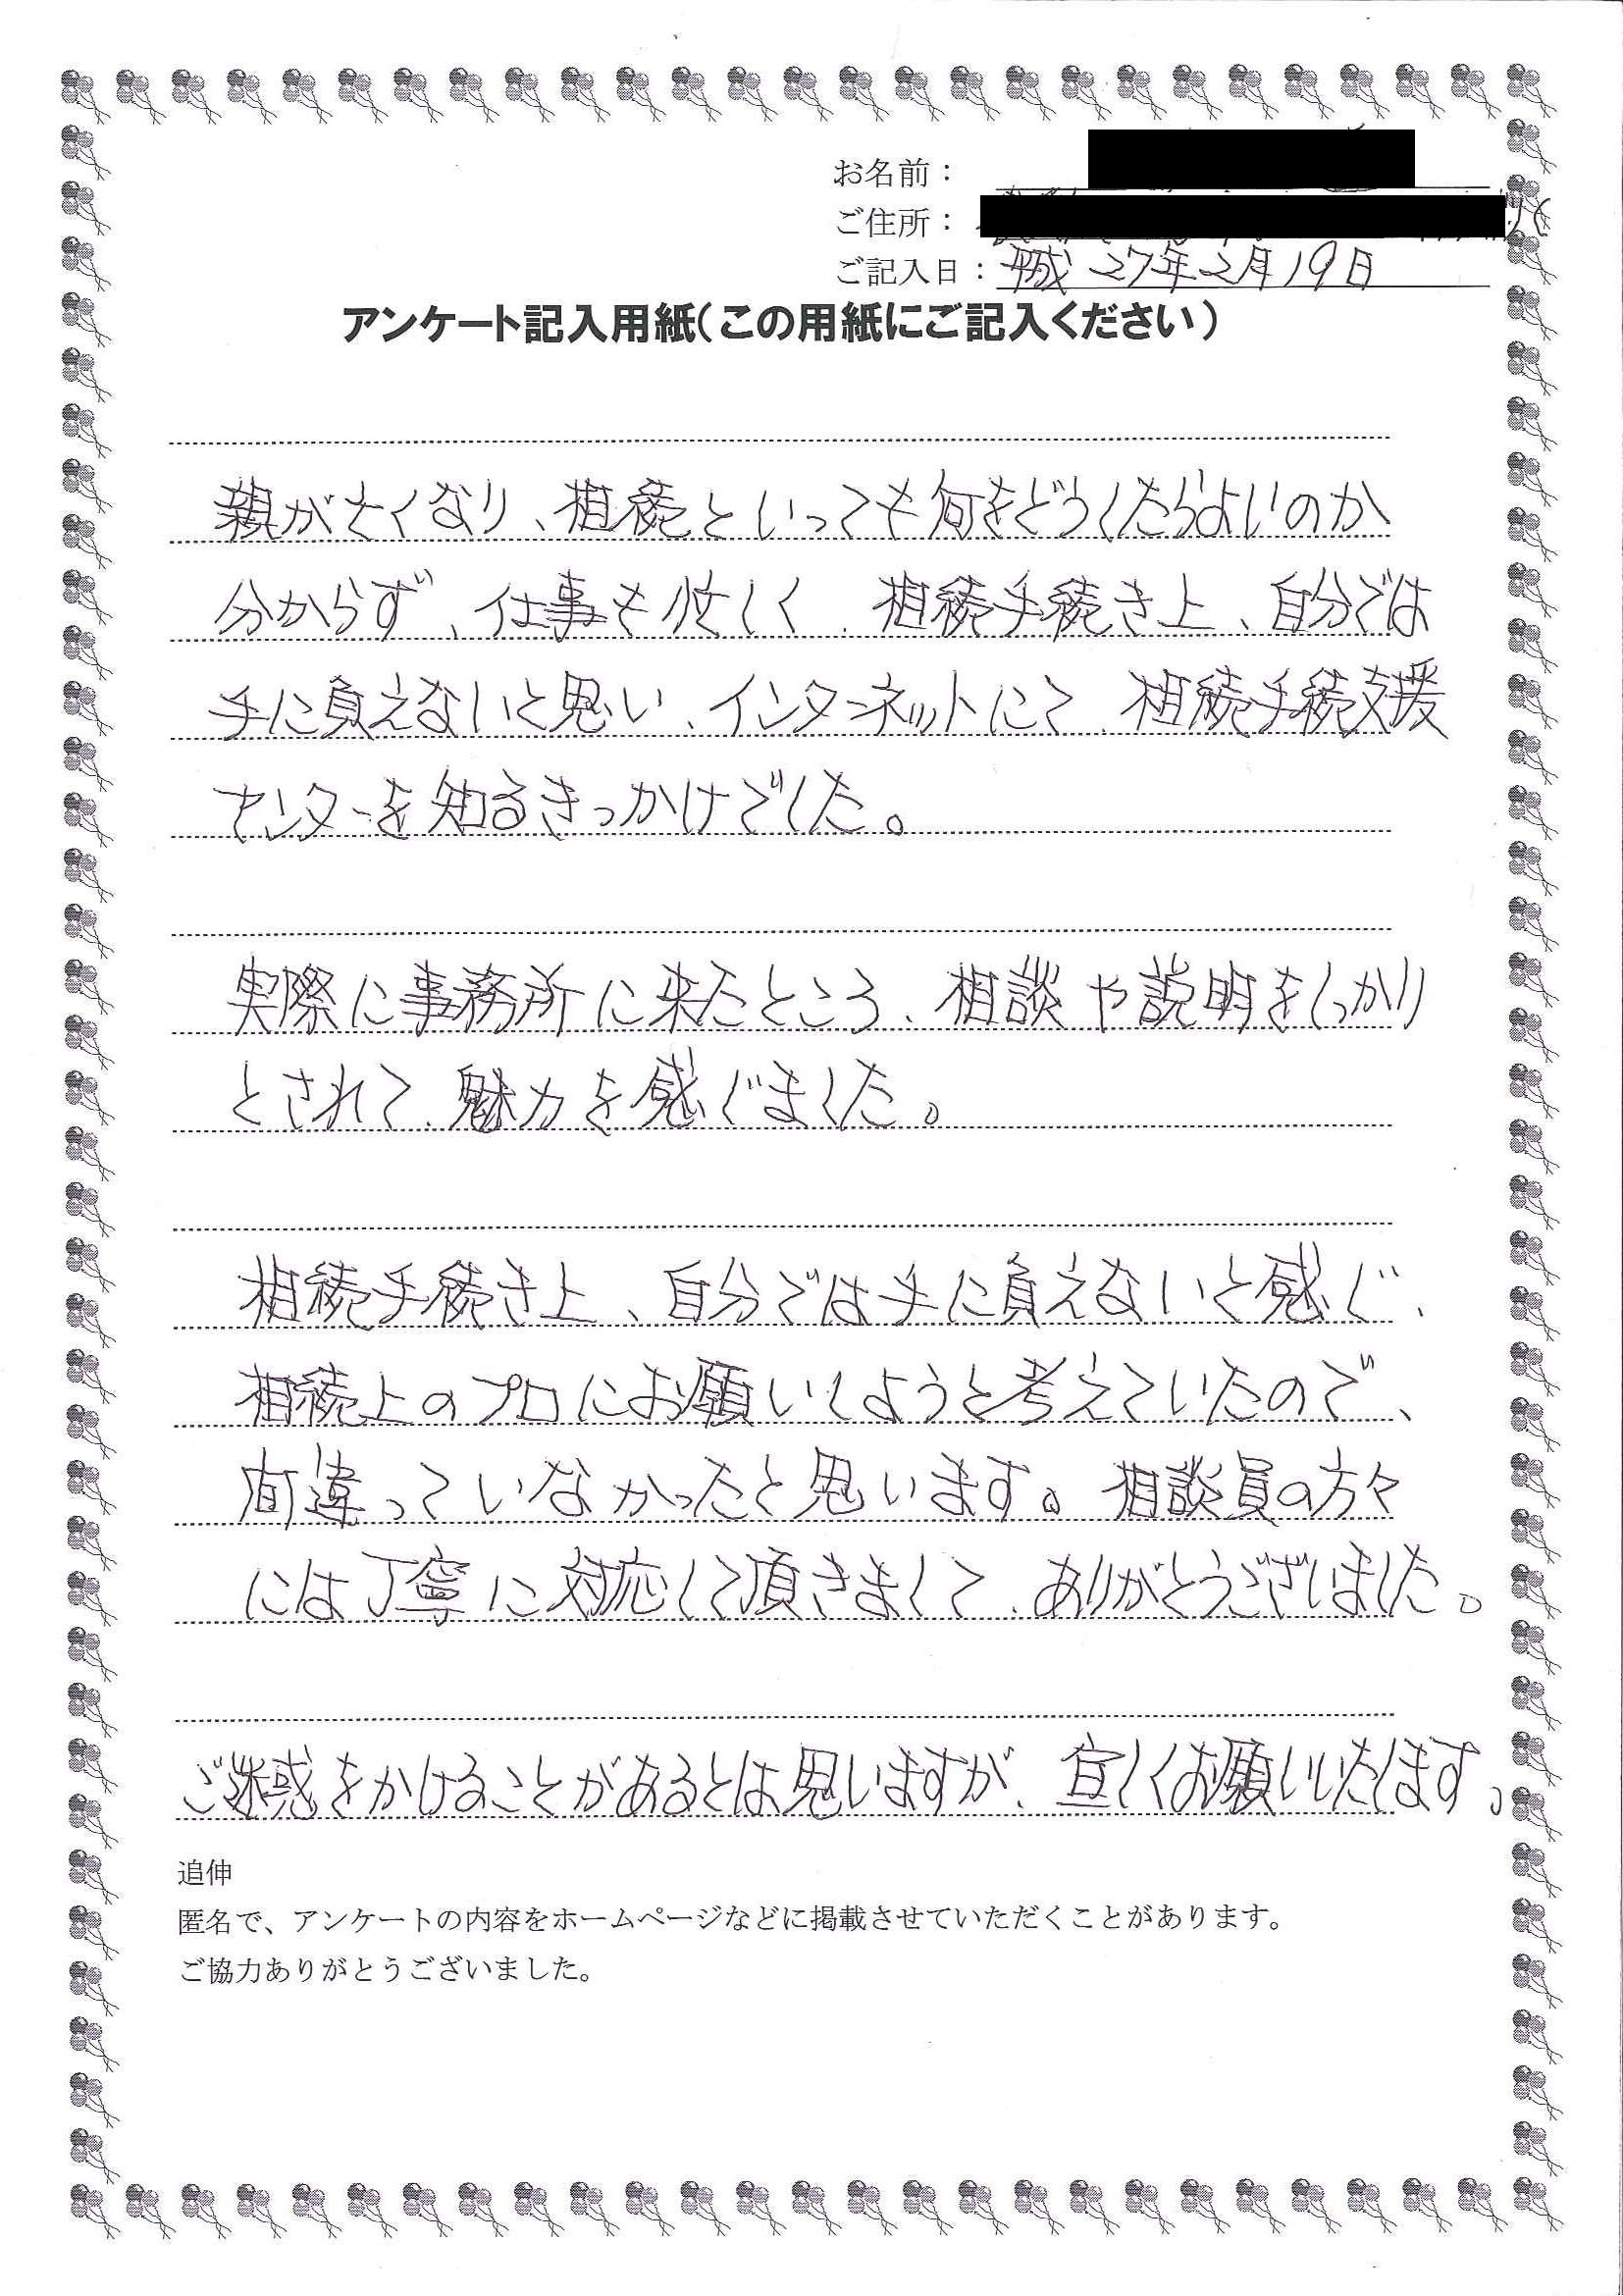 お名前：
ご住所：
ご記入日：平成27年2月19日
アンケート記入用紙（この用紙にご記入ください）
親が亡くなり、相続といっても何をどうしたらよいのか
分からず、仕事も忙しく、相続手続き上、自分では
手に負えないと思い、インターネットにて、相続手続支援
センターを知るきっかけでした。
実際に事務所に来たところ、相談や説明をしっかり
とされて、魅力を感じました。
相続手続き上、自分では手に負えないと感じ、
相続上のプロにお願いしようと考えていたので、
間違っていなかったと思います。相談員の方々
には丁寧に対応して頂きまして、ありがとうございました。
ご迷惑をかけることがあるとは思いますが、宜しくお願いいたします。
追伸
匿名で、アンケートの内容をホームページなどに掲載させていただくことがあります。
ご協力ありがとうございました。